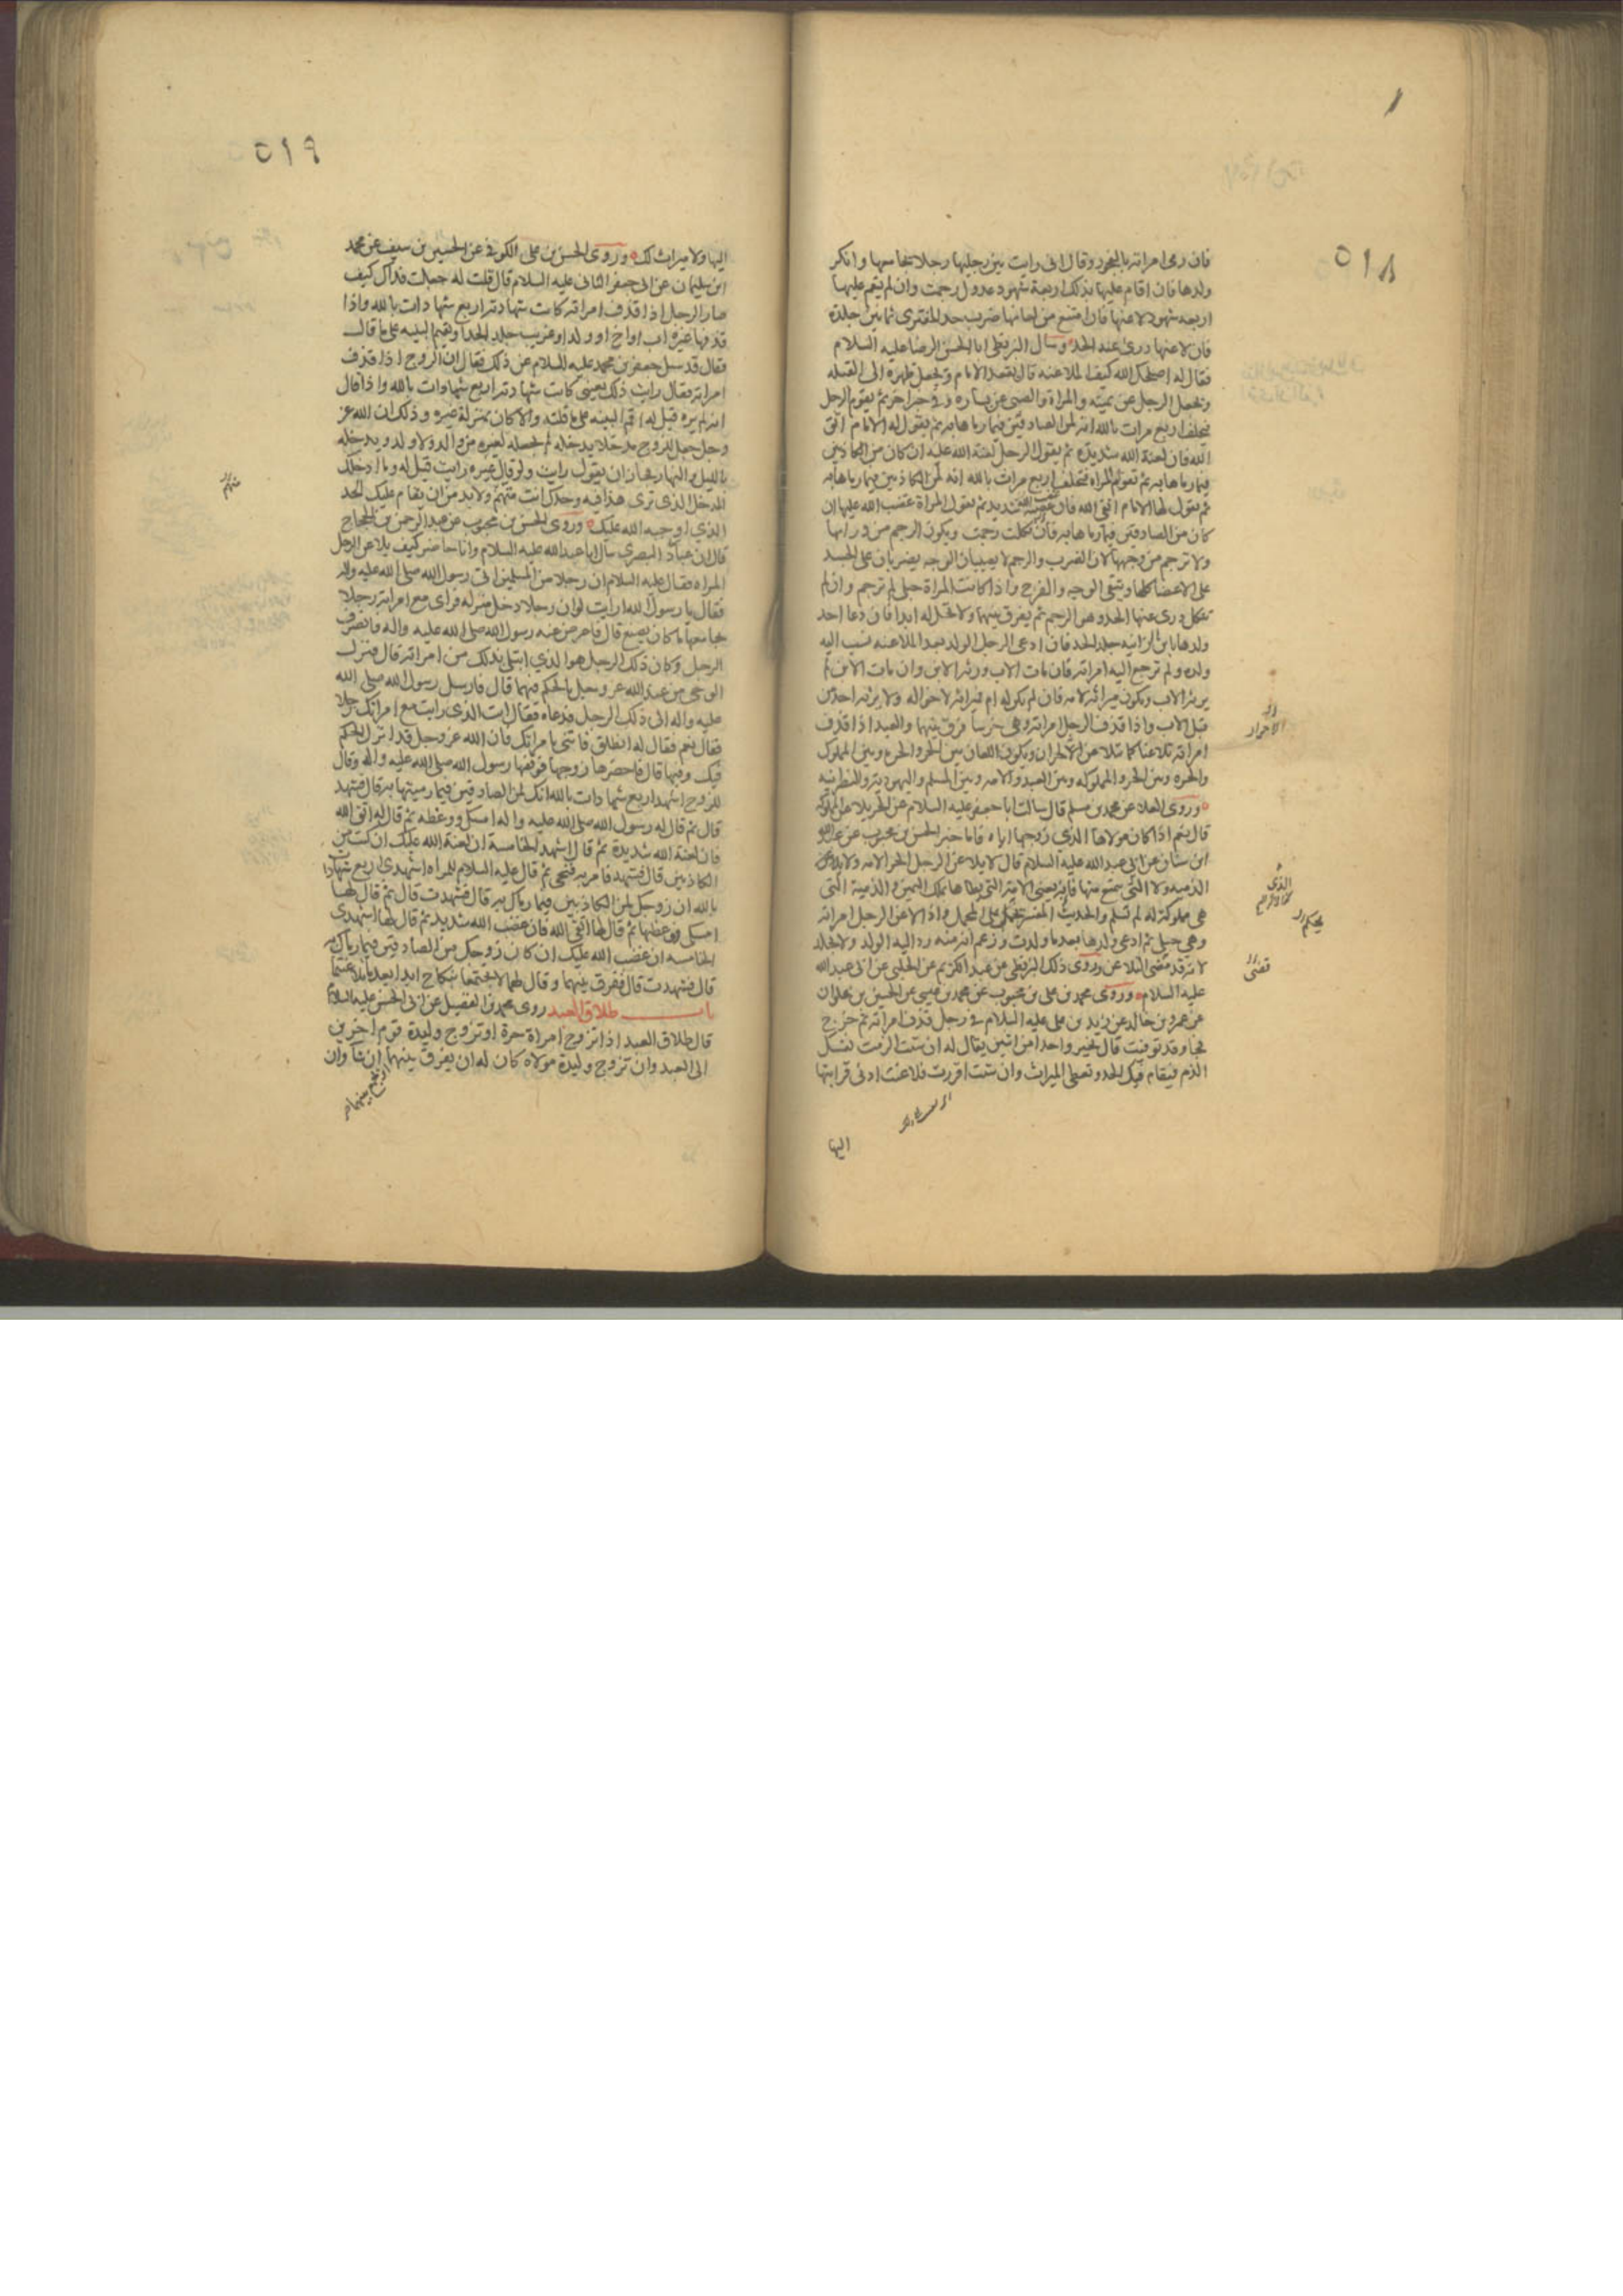 ٥١٨
فان رمى امراته بالفجور وقال انى رايت بين رجليها رجلا يجامعها وانكر
ولدها فان اقام عليها بذلك اربعة شهود عدول رجمت وان لم يقم عليها
اربعه شهود لاعنها فان امتنع من لعانها ضرب حد المفترى ثمانين جلدة
فان لاعنها درئ عنه الحد وسال البزنطى ابا الحسن الرضا عليه السلام
فقال له اصلحك الله كيف الملاعنه قال يقعد الامام ويجعل ظهره الى القبله
ويجعل الرجل عن يمينه والمراة والصبى عن يساره وفى خبر اخر ثم يقوم الرجل
فيحلف اربع مرات بالله انه لمن الصادقين فيما رماها به ثم يقول له الامام اتق
الله فان لعنة الله شديدة ثم يقول الرجل لعنة الله عليه ان كان من الكاذبين
فيما رماها به ثم تقوم المراة فتحلف اربع مرات بالله انه لمن الكاذبين فيما رماها به
ثم يقول لها الامام اتقى الله فان غضب الله شديد ثم تقول المراة غضب الله عليها ان
كان من الصادقين فيما رماها به فان نكلت رجمت ويكون الرجم من ورائها
ولا ترجم من وجهها لان الضرب والرجم لا يصيبان الوجه يضربان على الجسد
على الاعضا كلها ويتقى الوجه والفرج واذا كانت المراة حبلى لم ترجم وان لم
تنكل درئ عنها الحد وهو الرجم ثم يفرق بينهما ولا تحل له ابدا فان دعا احد
ولدها بابن الزانيه جلد الحد فان ادعى الرجل الولد بعد الملاعنه نسب اليه
ولده ولم ترجع اليه امراته فان مات الاب ورثه الابن وان مات الابن لم
يرثه الاب ويكون ميراثه لامه فان لم يكن له ام فميراثه لاخواله ولا يرثه احد من
قبل الاب واذا قذف الرجل امراته وهى خرسا فرق بينهما والعبد اذا قذف
امراته تلاعنا كما تلاعن الاحرار ويكون اللعان بين الحر والحرة وبين المملوك
والحره وبين الحر والمملوكه وبين العبد والامه وبين المسلم واليهودية والنصرانيه
وروى العلا عن محمد بن مسلم قال سالت ابا جعفر عليه السلام عن الحر يلاعن المملوكة
قال نعم اذا كان مولاها الذي زوجها اياه فاما خبر الحسن بن محبوب عن عبد الله
ابن سنان عن ابى عبد الله عليه السلام قال لا يلاعن الرجل الحر الامه ولا
الذميه ولا التى يتمتع منها فانه يعنى الامة التى يطاها بملك اليمين والذمية التى
هى مملوكة له لم تسلم والحديث المفسر يحكم على المجمل واذا لاعن الرجل امراته
وهى حبلى ثم ادعى ولدها بعد ما ولدت وزعم انه منه رد اليه الولد ولا يجلد
لانه قد مضى التلاعن وروى ذلك البزنطى عن عبد الكريم عن الحلبى عن ابى عبد الله
عليه السلام وروى محمد بن على بن محبوب عن محمد بن عيسى عن الحسين بن علوان
عن عمرو بن خالد عن زيد بن على عليه السلام فى رجل قذف امراته ثم خرج
فجا وقد توفيت قال يخير واحدا من اثنين يقال له ان شئت الزمت نفسك
الذم فيقام فيك الحد وتعطى الميراث وان شئت اقررت فلاعنت ادنى قرابتها
اليها
الاحرار
الذى
يحكم
قضى
٥١٩
اليها ولا ميراث لك وروى الحسن بن على الكوفى عن الحسين بن سيف عن محمد
ابن سليمان عن ابى جعفر الثانى عليه السلام قال قلت له جعلت فداك كيف
صار الرجل اذا قذف امراته كانت شهادته اربع شهادات بالله واذا
قذفها غيره اب او اخ او ولد او غريب جلد الحد او يقيم البينه على ما قال
فقال قد سئل جعفر بن محمد عليه السلام عن ذلك فقال ان الزوج اذا قذف
امراته فقال رايت ذلك بعينى كانت شهادته اربع شهادات بالله واذا قال
انه لم يره قيل له اقم البينه على ما قلته والا كان بمنزلة غيره وذلك ان الله عز
وجل جعل للزوج مدخلا يدخله لم يجعله لغيره من والد ولا ولد ويدخله
بالليل والنهار فجاز ان يقول رايت ولو قال غيره رايت قيل له وما ادخلك
المدخل الذى ترى هذا فيه وحدك انت متهم ولا بد من ان يقام عليك الحد
الذي اوجبه الله عليك وروى الحسن بن محبوب عن عبد الرحمن بن الحجاج
قال ان عباد البصري سال ابا عبد الله عليه السلام وانا حاضر كيف يلاعن الرجل
المراه فقال عليه السلام ان رجلا من المسلمين اتى رسول الله صلى الله عليه واله
فقال يا رسول الله ارايت لو ان رجلا دخل منزله فراى مع امراته رجلا
يجامعها ما كان يصنع قال فاعرض عنه رسول الله صلى الله عليه واله وانصرف
الرجل وكان ذلك الرجل هو الذي ابتلى بذلك من امراته قال فنزل
الوحى من عند الله عز وجل بالحكم فيهما قال فارسل رسول الله صلى الله
عليه واله الى ذلك الرجل فدعاه فقال انت الذى رايت مع امراتك رجلا
فقال نعم فقال له انطلق فاتنى بامراتك فان الله عز وجل قد انزل الحكم
فيك وفيها قال فاحضرها زوجها فوقفها رسول الله صلى الله عليه واله وقال
للزوج اشهد اربع شهادات بالله انك لمن الصادقين فيما رميتها به قال فشهد
قال ثم قال له رسول الله صلى الله عليه واله امسك ووعظه ثم قال له اتق الله
فان لعنة الله شديدة ثم قال اشهد الخامسة ان لعنة الله عليك ان كنت من
الكاذبين قال فشهد فامر به فنحى ثم قال عليه السلام للمراه اشهدى اربع شهادات
بالله ان زوجك لمن الكاذبين فيما رماك به قال فشهدت قال ثم قال لها
امسكى فوعظها ثم قال لها اتقى الله فان غضب الله شديد ثم قال لها اشهدى
الخامسه ان غضب الله عليك ان كان زوجك من الصادقين فيما رماك به
قال فشهدت قال ففرق بينهما وقال لهما لا تجتمعا بنكاح ابدا بعد ما تلاعنتما
باب طلاق العبد روى محمد بن الفضيل عن ابى الحسن عليه السلام
قال طلاق العبد اذا تزوج امراة حرة او تزوج وليدة قوم اخرين
الى العبد وان تزوج وليدة مولاه كان له ان يفرق بينهما ان شا وان
متهم